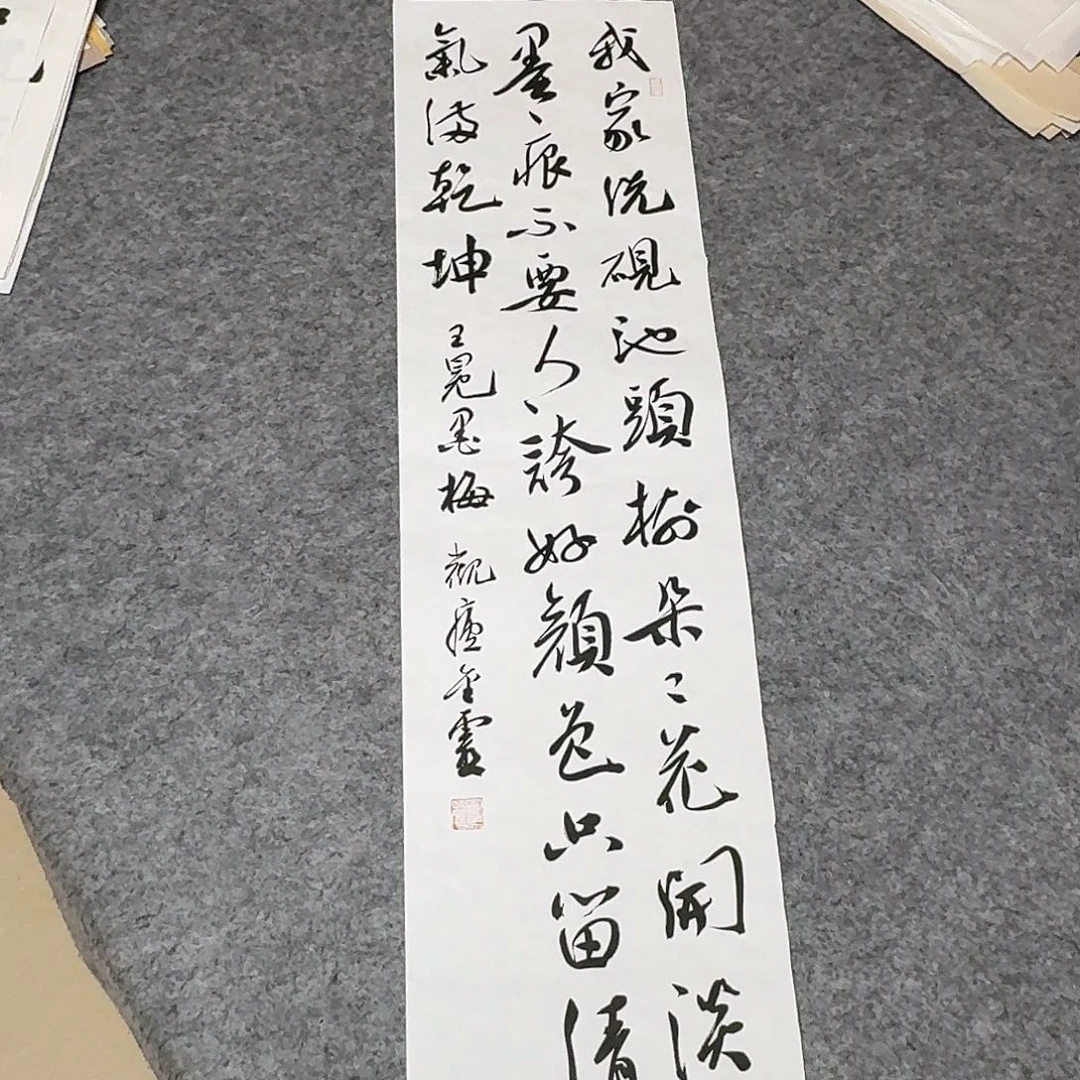 我家洗硯池頭樹朵〻花開淡
墨痕不要人誇好顏色只留清
氣滿乾坤
王冕墨梅